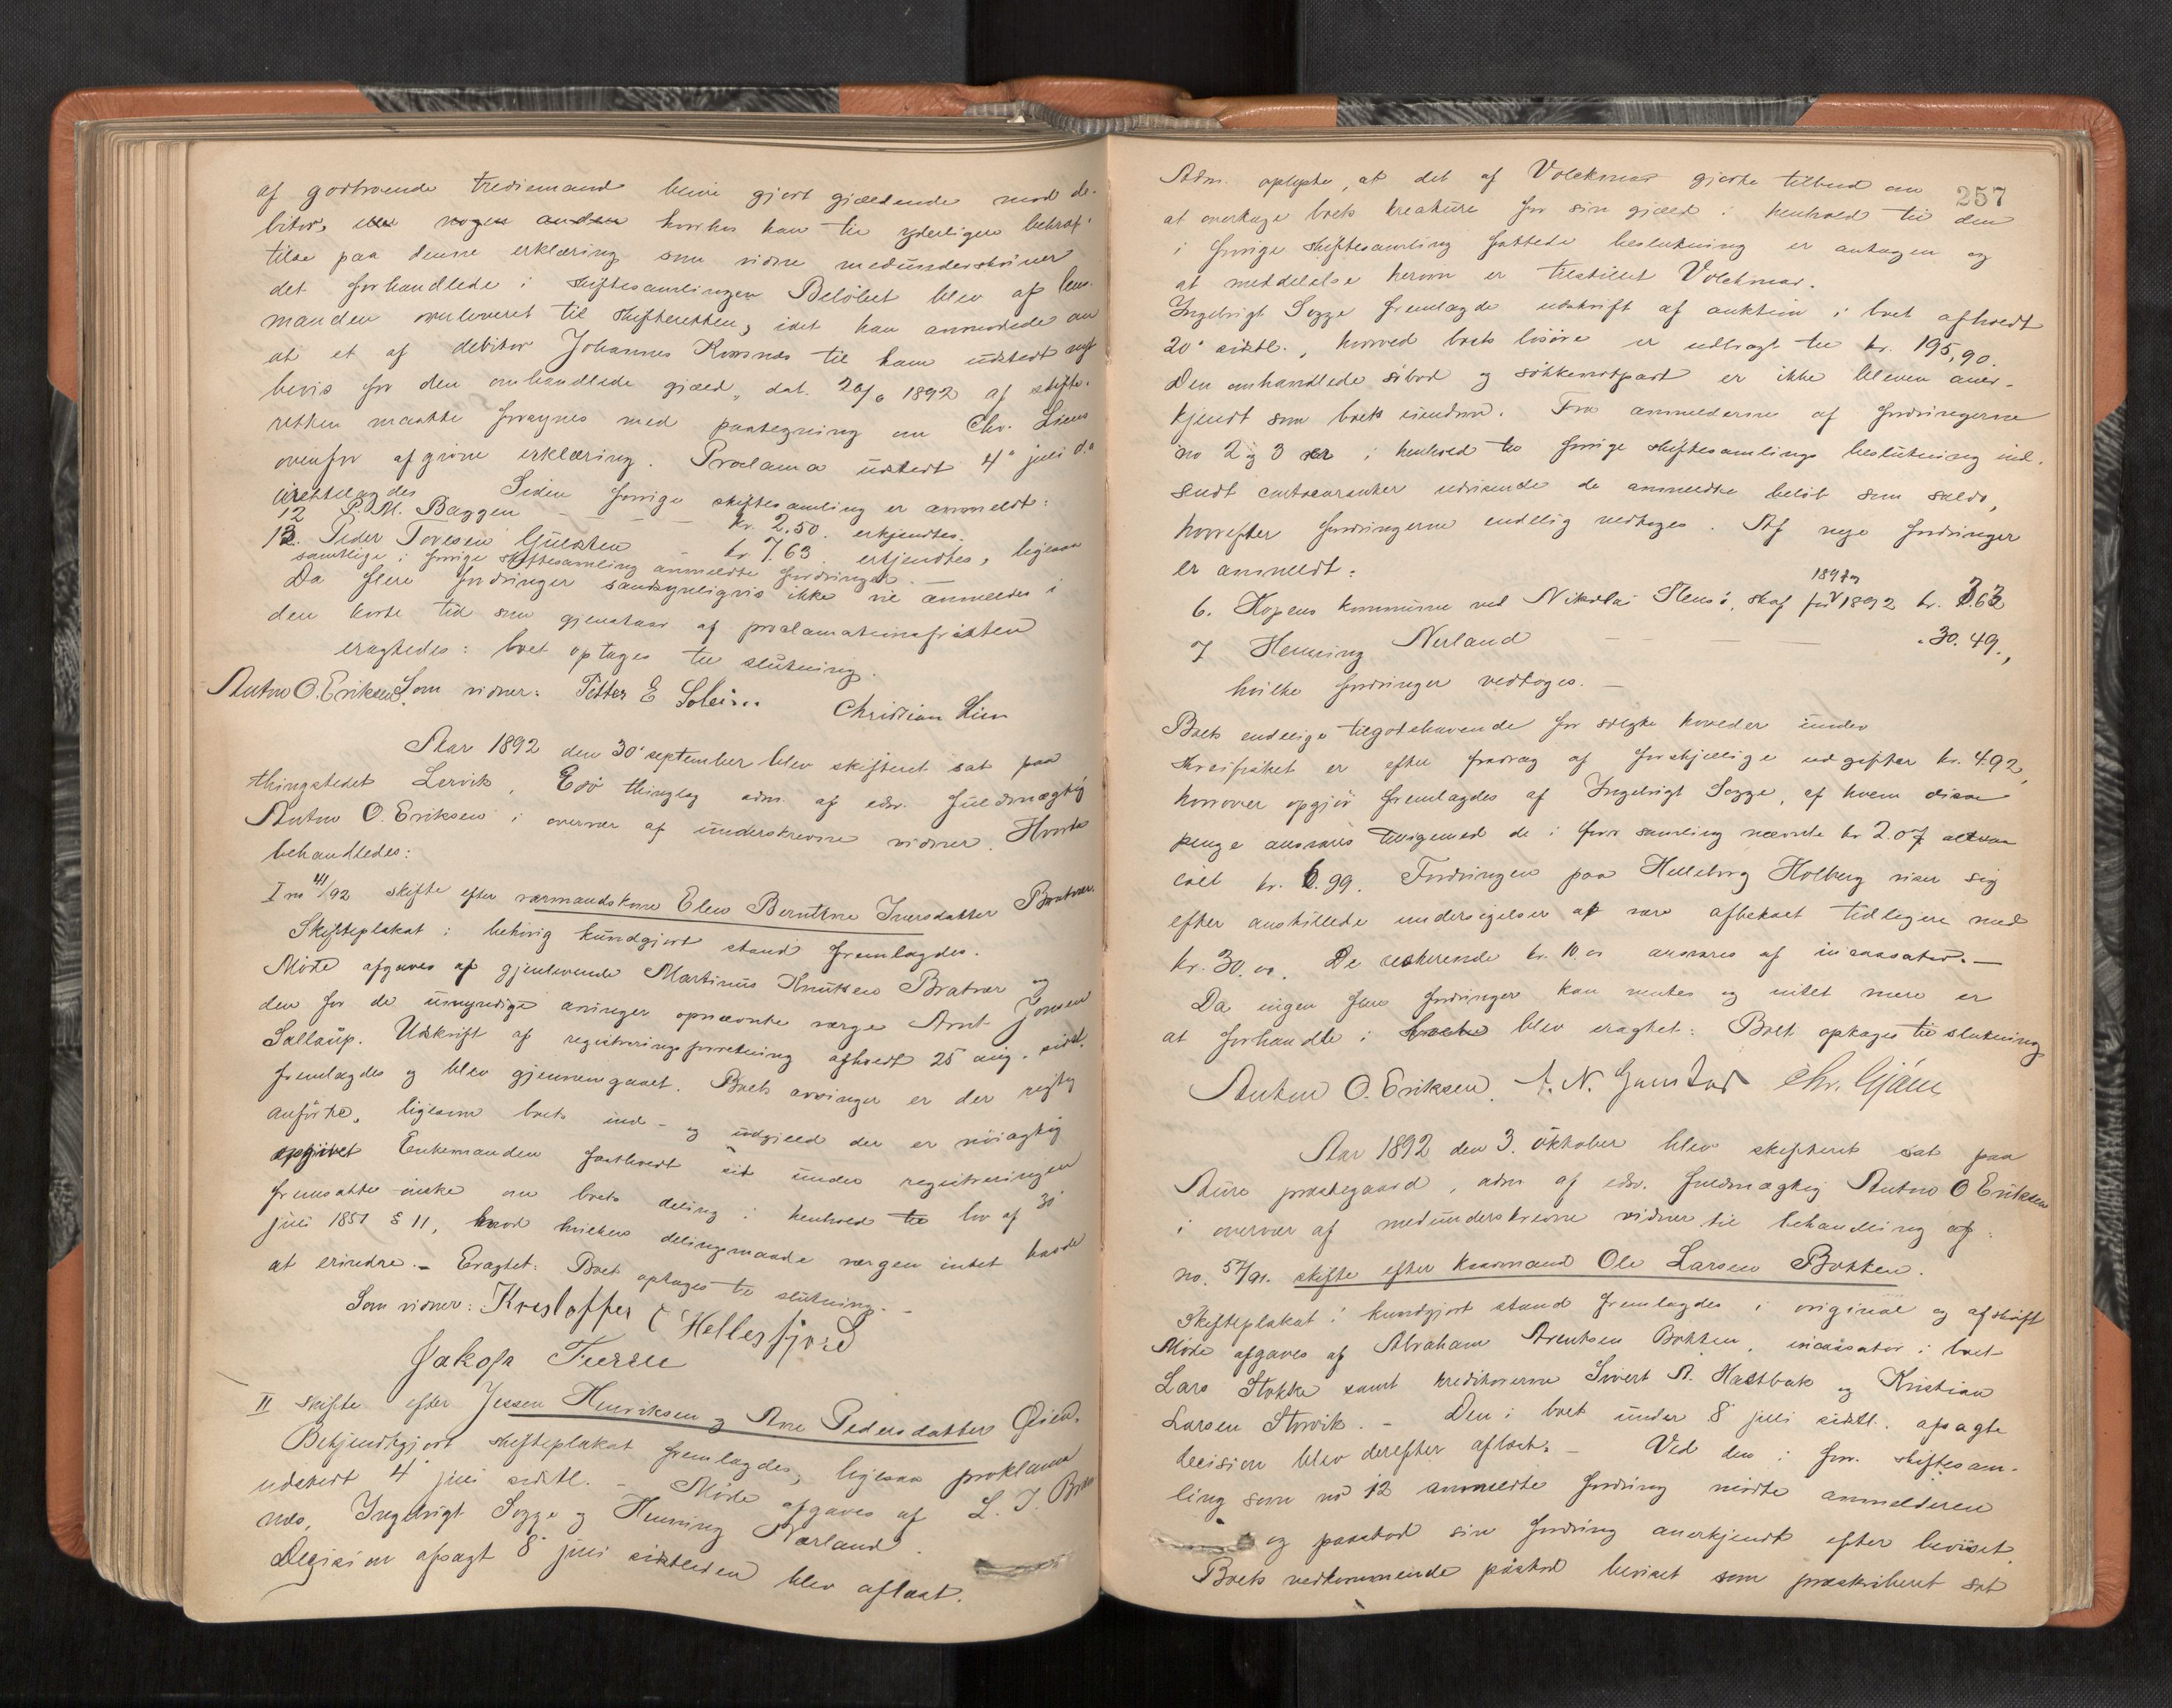 af godtroende trediemand blive gjort gjældende mod de-
bitor, hvorhos han til yderligere bekræf-
telse paa denne erklæring som vidne medunderskriver
det forhandlede i skiftesamlingen Beløbet blev af lens-
manden overleveret til skifteretten, idet han anmodede om
at et af debitor Johannes Korsnes til ham udstedt
bevis for den omhandlede gjæld, dat. 20/6 1892 af skifte-
retten maatte forsynes med paategning om Chr. Liens
ovenfor afgivne erklæring. Proclama udstedt 4de juli d.a
irettelagdes Siden forrige skiftesamling er anmeldt:
12 P. M. Baggen - - - kr. 2.50. erkjendtes.
13. Peder Toresen Gulsten - kr. 7.63 erkjendtes, ligesaa
samtlige i forrige skiftesamling anmeldte fordringer. -
Da flere fordringer sandsynligvis ikke vil anmeldes i
den korte tid som gjenstaar af proclamationsfristen
eragtedes: boet optages til slutning.
Anton O. Eriksen. Som vidner: Petter E Solei...
Christian Lien
Aar 1892 den 30' september blev skifteret sat paa
thingstedet Lervik, Edø thinglag adm. af edsv. fuldmægtig
Anton O. Eriksen i overvær af underskrevne vidner. Hvorda
behandledes:
I no 41/92 skifte efter værmandskone Elen Beruthne Iversdatter Bratvær.
Skifteplakat i behørig kundgjort stand fremlagdes.
Møde afgaves af gjenlevende Martinus Knutsen Bratvær og
den for de umyndige arvinger opnævnte værge Arnt Jonsen
Sallaup. Udskrift af registreringsforretning afholdt 25 aug. sidstl.
fremlagdes og blev gjennemgaaet. Boets arvinger er der rigtig
anførte, ligesom boets ind- og udgjæld der er nøiagtig
opgivet Enkemanden fastholdt sit under registreringen
fremsatte ønske om boets deling i henhold til lov af 30'
juli 1851 § 11, mod hvilken delingsmaade værgen intet havde
at erindre. - Eragtet: Boet optages til slutning. -
Som vidner: Kristoffer C Hellesfjord
Jakob Furru
II skifte efter Jessen Henriksen og Ane Pedersdatter Øien.
Bekjendtgjort skifteplakat fremlagdes, ligesaa proklama
udstedt 4' juli sidstl. - Møde afgaves af L. J. Brem
nes, Ingebrigt Sogge og Henning Nærland.
Decision afsagt 8' juli sidstleden blev aflæst.
257
Adm. oplyste, at det af Volckmar gjorte tilbud om
at overtage boets kreature for sin gjæld i henhold til den
i forrige skiftesamling fattede beslutning er antagen og
at meddelelse herom er tilstillet Volckmar.
Ingebrigt Sogge fremlagde udskrift af auktion i boet afholdt
20' sidstl., hvorved boets løsøre er udbragt til kr. 195,90.
Den omhandlede søbod og søkkenotpart er ikke bleven aner-
kjendt som boets eiendom. Fra anmelderne af fordringerne
no 2 og 3 er i henhold til forrige skiftesamlings beslutning ind-
sendt contocuranter udvisende de anmeldte beløb som saldo,
hvorefter fordringerne endelig vedtoges. Af nye fordringer
er anmeldt:
1891 og
6. Hopens kommune ved Nikolai Stensø, skat for V 1892 kr. 3.63
7 Henning Nerland - - - " 30.49.,
hvilke fordringer vedtoges. -
Boets endelige tilgodehavende for solgte hoveder under
skreifisket er efter fradrag af forskjellige udgifter kr. 4.92,
hvorover opgjør fremlagdes af Ingebrigt Sogge, af hvem disse
penge ansvares tilligemed de i forr. samling nævnte kr 2.07 altsaa
ialt kr. 6.99. Fordringen paa Helleborg Holberg viser sig
efter anstillede undersøgelser at være afbetalt tidligere med
kr. 30.00. De resterende kr. 10.00 ansvares af incassator. -
Da ingen flere fordringer kan ventes og intet mere er
at forhandle i boet blev eragtet: Boet optages til slutning
Anton O. Eriksen. A. N. Gumdal Chr. Gjøen
Aar 1892 den 3. oktober blev skifteret sat paa
Aure præstegaard, adm af edsv. fuldmægtig Anton O Eriksen
i overvær af medunderskrevne vidner til behandling af:
no. 57/91. skifte efter kaarmand Ole Larsen Botten.
Skifteplakat i kundgjort stand fremlagdes i original og afskrift
Møde afgaves af Abraham Arentsen Botten, incassator i boet
Lars Stokke samt kreditorerne Sivert A. Hastbak og Kristian
Larsen Storvik. - Den i boet under 8' juli sidstl. afsagte
decision blev derefter aflæst. - Ved den i forr. skiftesam-
ling som no 12 anmeldte fordring mødte anmelderen
og paastod sin fordring anerkjendt efter beviset.
Boets vedkommende paastod beviset som præskriberet sat